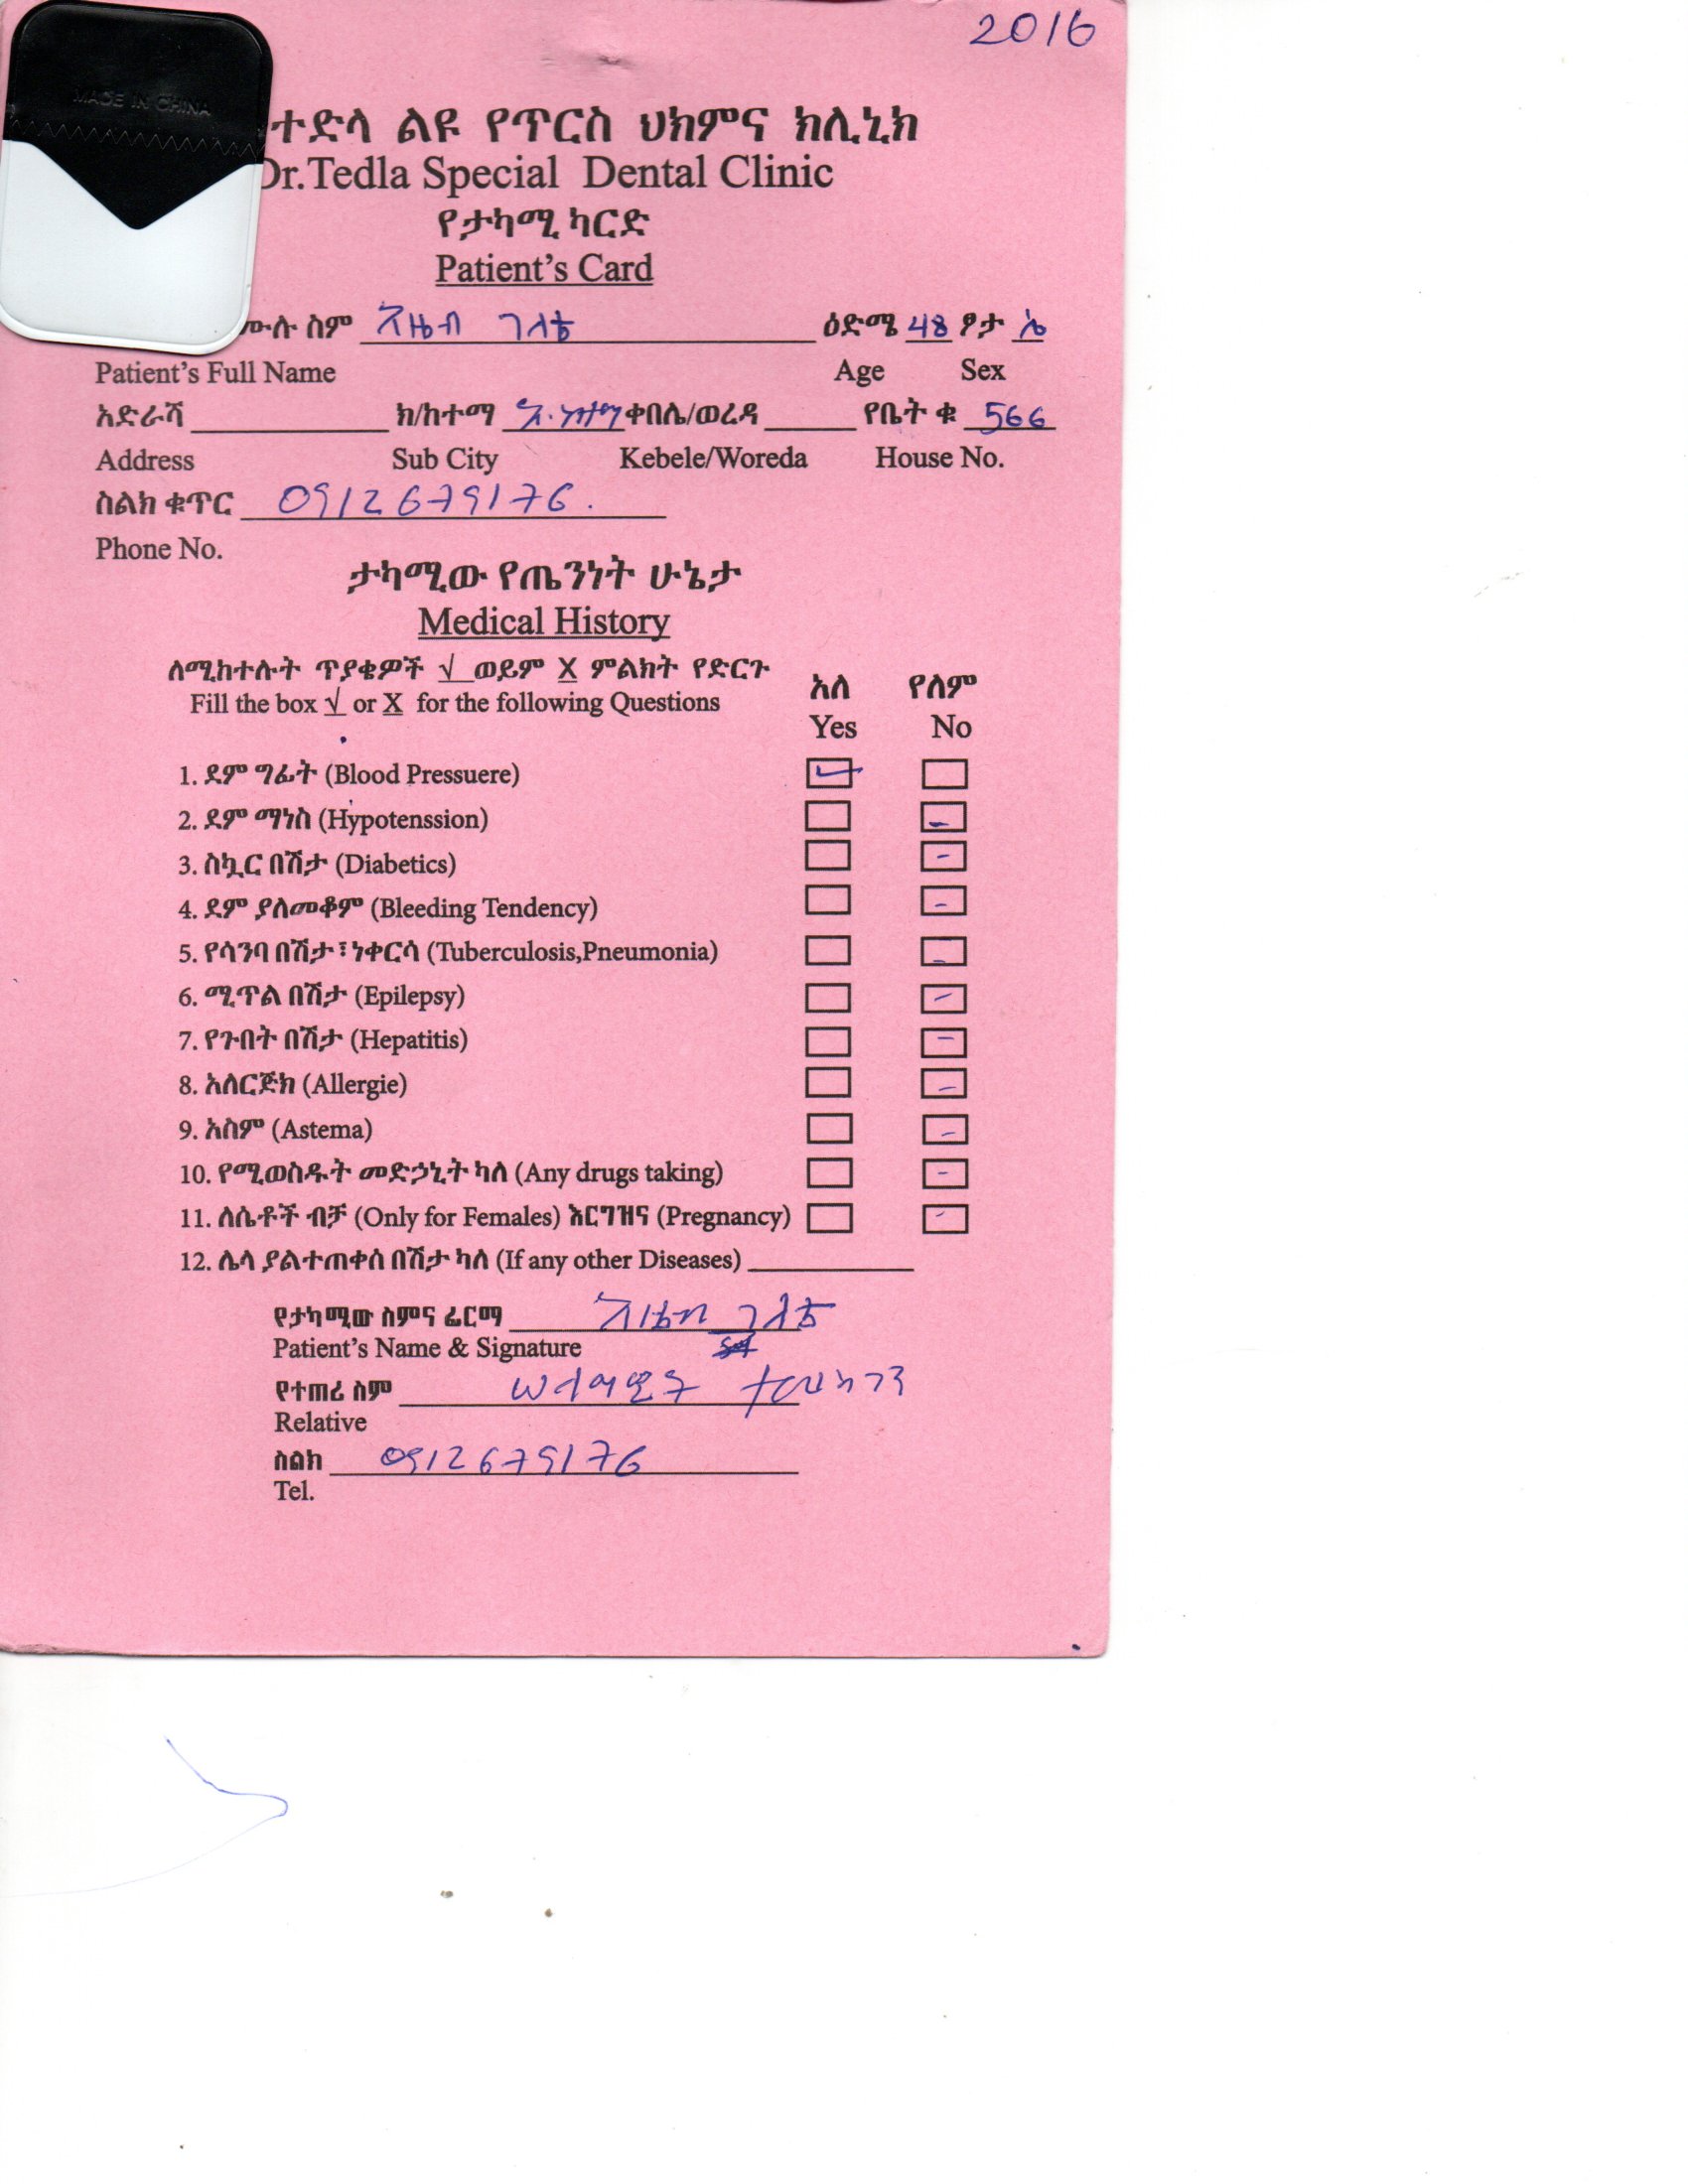 2016
MADE IN CHINA
ተድላ ልዩ የጥርስ ህክምና ክሊኒክ
Dr.Tedla Special Dental Clinic
የታካሚ ካርድ
Patient's Card
ሙሉ ስም ዕድሜ 48 ፆታ ሴ
Patient's Full Name Age Sex
አድራሻ ክ/ከተማ ቀበሌ/ወረዳ የቤት ቁ 566
Address Sub City Kebele/Woreda House No.
ስልክ ቁጥር 0912679176.
Phone No.
ታካሚው የጤንነት ሁኔታ
Medical History
ለሚከተሉት ጥያቄዎች √ ወይም X ምልክት የድርጉ
Fill the box √ or X for the following Questions
አለ የለም
Yes No
1. ደም ግፊት (Blood Pressuere)
2. ደም ማነስ (Hypotenssion)
3. ስኳር በሽታ (Diabetics)
4. ደም ያለመቆም (Bleeding Tendency)
5. የሳንባ በሽታ፣ነቀርሳ (Tuberculosis,Pneumonia)
6. ሚጥል በሽታ (Epilepsy)
7. የጉበት በሽታ (Hepatitis)
8. አለርጅክ (Allergie)
9. አስም (Astema)
10. የሚወስዱት መድኃኒት ካለ (Any drugs taking)
11. ለሴቶች ብቻ (Only for Females) እርግዝና (Pregnancy)
12. ሌላ ያልተጠቀሰ በሽታ ካለ (If any other Diseases)
የታካሚው ስምና ፊርማ
Patient's Name & Signature
የተጠሪ ስም
Relative
ስልክ 0912679176
Tel.